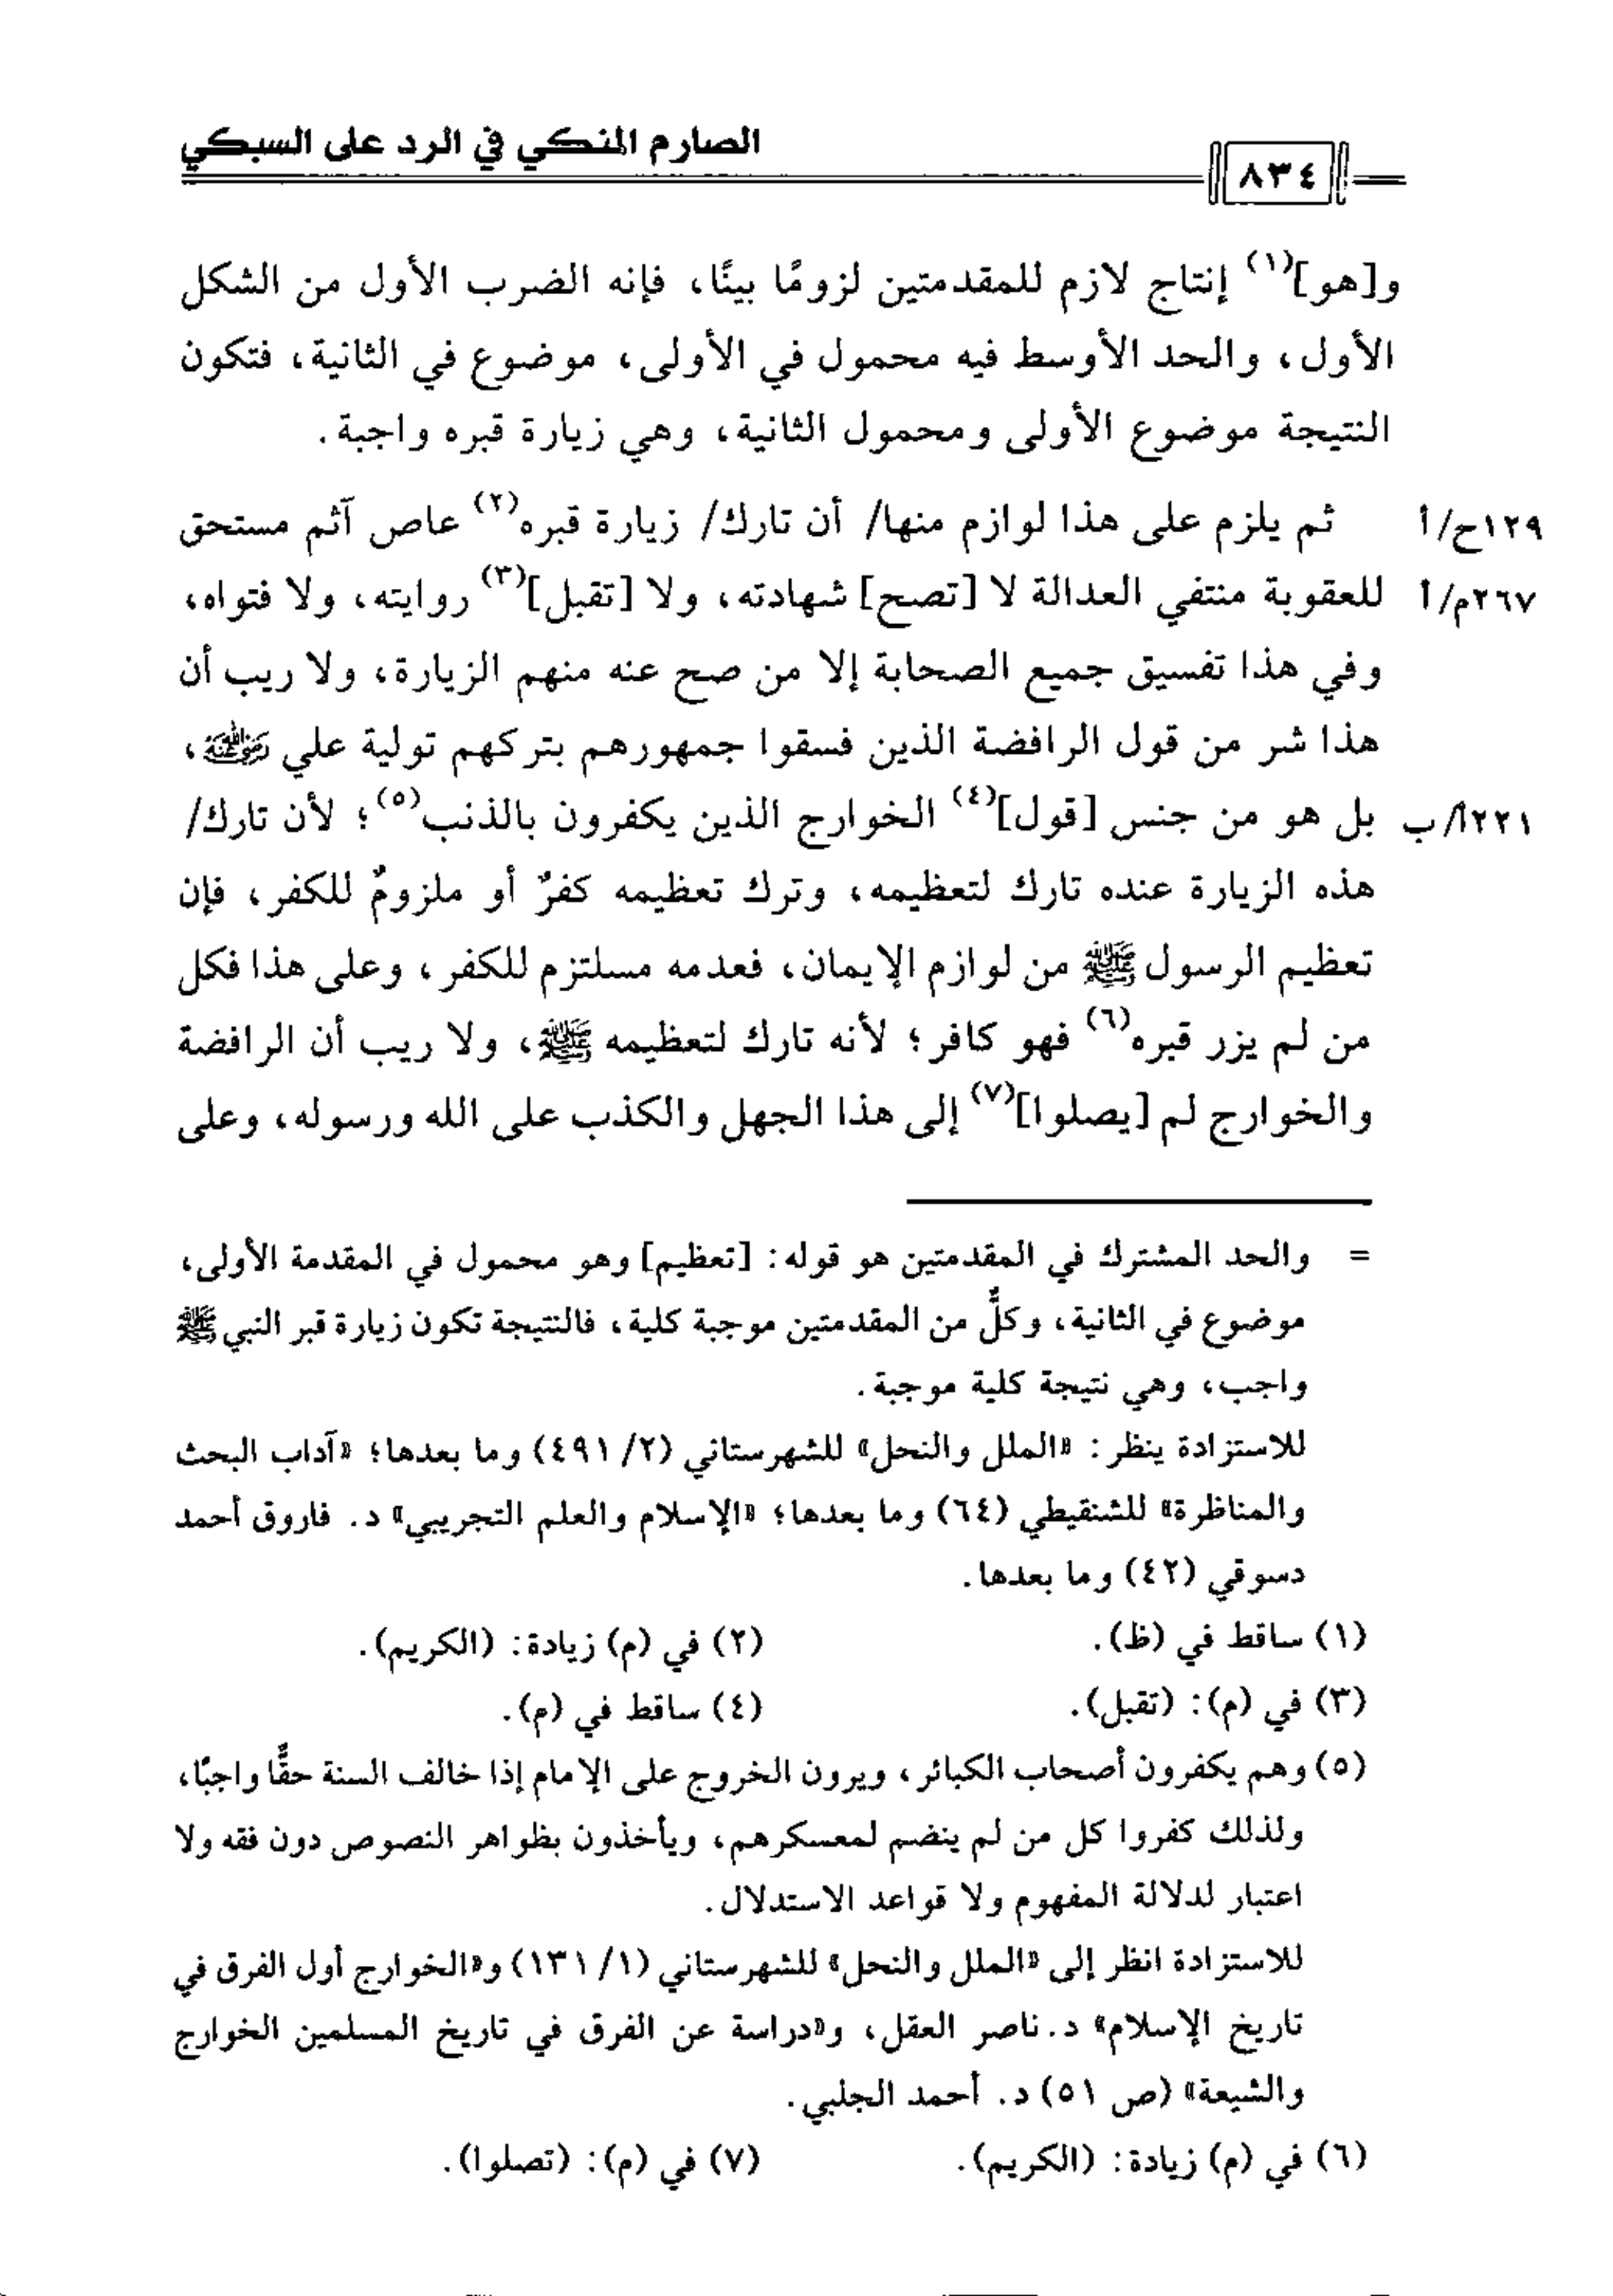 الصارم المنكي في الرد على السبكي
٨٣٤
و[هو](١) إنتاج لازم للمقدمتين لزومًا بينًا، فإنه الضرب الأول من الشكل
الأول، والحد الأوسط فيه محمول في الأولى، موضوع في الثانية، فتكون
النتيجة موضوع الأولى ومحمول الثانية، وهي زيارة قبره واجبة.
١٢٩ح/أ ثم يلزم على هذا لوازم منها/ أن تارك/ زيارة قبره(٢) عاص آثم مستحق
٢٦٧م/أ للعقوبة منتفي العدالة لا [تصح] شهادته، ولا [تقبل](٣) روايته، ولا فتواه،
وفي هذا تفسيق جميع الصحابة إلا من صح عنه منهم الزيارة، ولا ريب أن
هذا شر من قول الرافضة الذين فسقوا جمهورهم بتركهم تولية علي رضي الله عنه،
٢٢١أ/ب بل هو من جنس [قول](٤) الخوارج الذين يكفرون بالذنب(٥)؛ لأن تارك/
هذه الزيارة عنده تارك لتعظيمه، وترك تعظيمه كفرٌ أو ملزومٌ للكفر، فإن
تعظيم الرسول ﷺ من لوازم الإيمان، فعدمه مسلتزم للكفر، وعلى هذا فكل
من لم يزر قبره(٦) فهو كافر؛ لأنه تارك لتعظيمه ﷺ، ولا ريب أن الرافضة
والخوارج لم [يصلوا](٧) إلى هذا الجهل والكذب على الله ورسوله، وعلى
= والحد المشترك في المقدمتين هو قوله: [تعظيم] وهو محمول في المقدمة الأولى،
موضوع في الثانية، وكلٌّ من المقدمتين موجبة كلية، فالنتيجة تكون زيارة قبر النبي ﷺ
واجب، وهي نتيجة كلية موجبة.
للاستزادة ينظر: «الملل والنحل» للشهرستاني (٢/ ٤٩١) وما بعدها؛ «آداب البحث
والمناظرة» للشنقيطي (٦٤) وما بعدها؛ «الإسلام والعلم التجريبي» د. فاروق أحمد
دسوقي (٤٢) وما بعدها.
(١) ساقط في (ظ). (٢) في (م) زيادة: (الكريم).
(٣) في (م): (تقبل). (٤) ساقط في (م).
(٥) وهم يكفرون أصحاب الكبائر، ويرون الخروج على الإمام إذا خالف السنة حقًّا واجبًا،
ولذلك كفروا كل من لم ينضم لمعسكرهم، ويأخذون بظواهر النصوص دون فقه ولا
اعتبار لدلالة المفهوم ولا قواعد الاستدلال.
للاستزادة انظر إلى «الملل والنحل» للشهرستاني (١/ ١٣١) و«الخوارج أول الفرق في
تاريخ الإسلام» د.ناصر العقل، و«دراسة عن الفرق في تاريخ المسلمين الخوارج
والشيعة» (ص ٥١) د. أحمد الجلبي.
(٦) في (م) زيادة: (الكريم). (٧) في (م): (تصلوا).